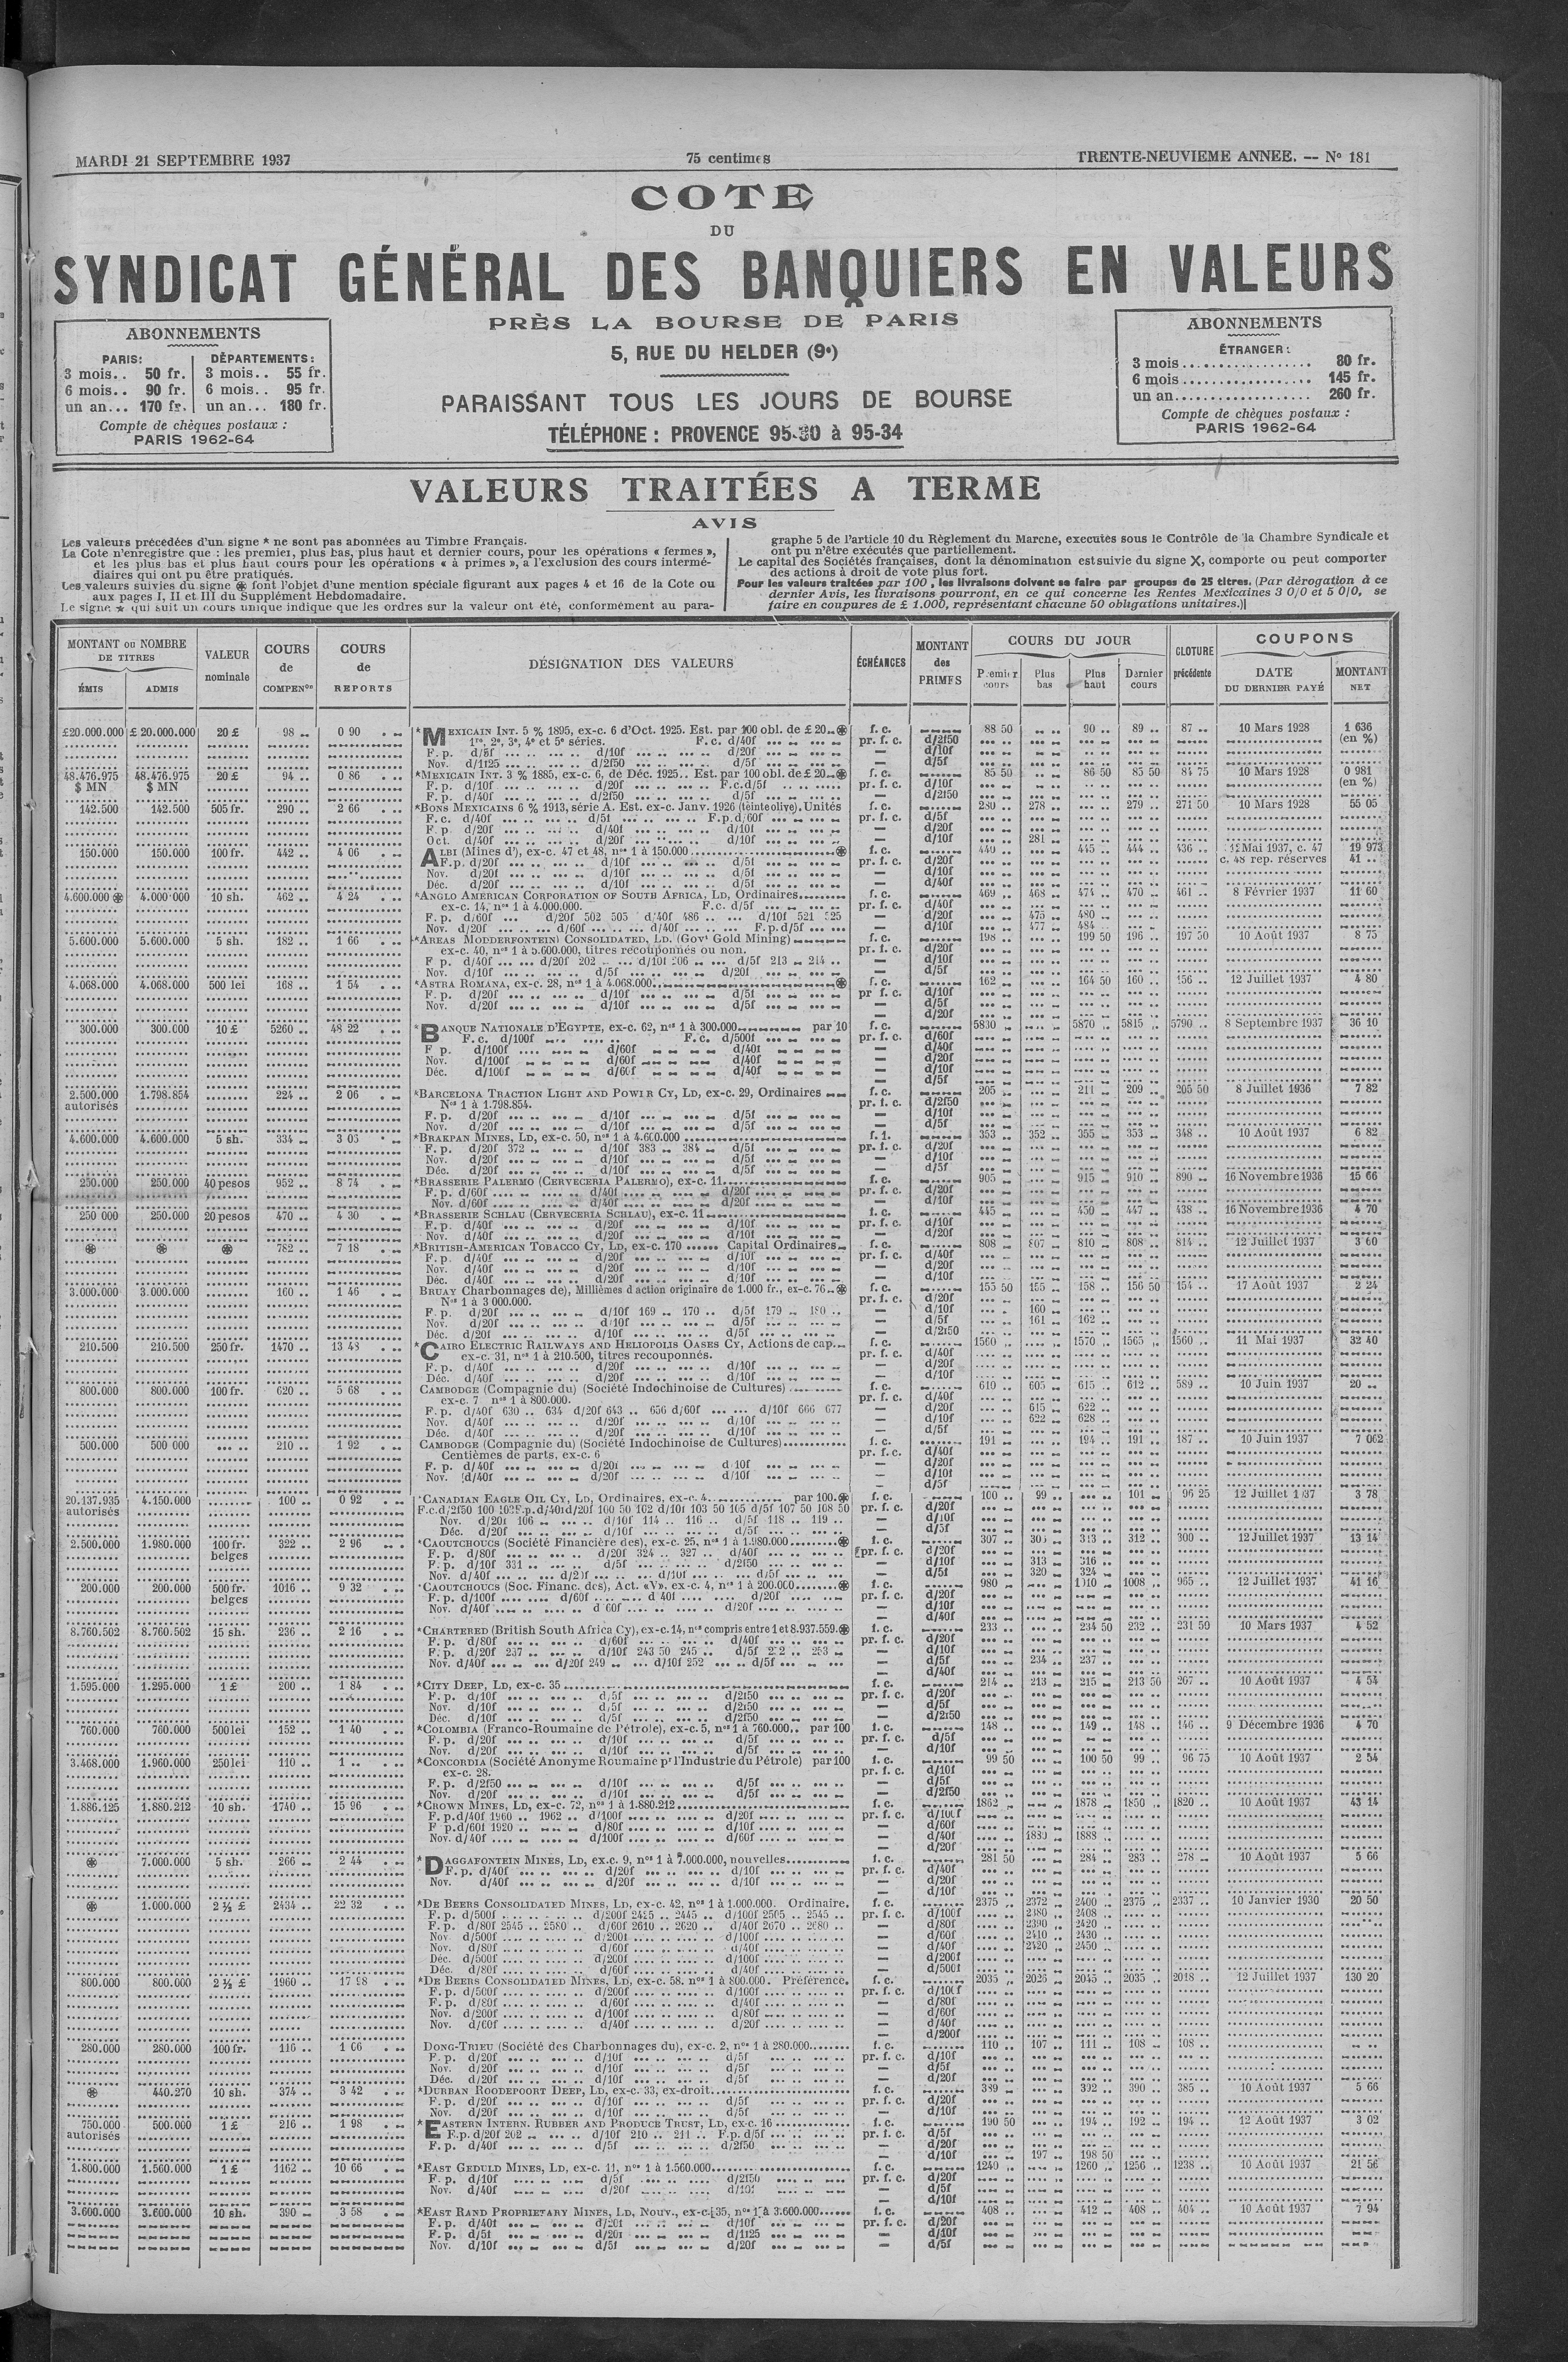 MARDI 21 SEPTEMBRE 1937
75 centimes
TRENTE-NEUVIEME ANNEE. — Nº 181
COTE
DU
SYNDICAT GÉNÉRAL DES BANQUIERS EN VALEURS
PRÈS LA BOURSE DE PARIS
5, RUE DU HELDER (9e)
PARAISSANT TOUS LES JOURS DE BOURSE
TÉLÉPHONE : PROVENCE 95-30 à 95-34
ABONNEMENTS
PARIS: DÉPARTEMENTS:
3 mois.. 50 fr. 3 mois.. 55 fr.
6 mois.. 90 fr. 6 mois.. 95 fr.
un an... 170 fr. un an... 180 fr.
Compte de chèques postaux :
PARIS 1962-64
ABONNEMENTS
ÉTRANGER :
3 mois.................. 80 fr.
6 mois.................. 145 fr.
un an................... 260 fr.
Compte de chèques postaux :
PARIS 1962-64
VALEURS TRAITÉES A TERME
AVIS
Les valeurs précédées d'un signe * ne sont pas abonnées au Timbre Français.
La Cote n'enregistre que : les premier, plus bas, plus haut et dernier cours, pour les opérations « fermes »,
et les plus bas et plus haut cours pour les opérations « à primes », a l'exclusion des cours intermé-
diaires qui ont pu être pratiqués.
Les valeurs suivies du signe ⊛ font l'objet d'une mention spéciale figurant aux pages 4 et 16 de la Cote ou
aux pages I, II et III du Supplément Hebdomadaire.
Le signe * qui suit un cours unique indique que les ordres sur la valeur ont été, conformément au para-
graphe 5 de l'article 10 du Règlement du Marché, exécutés sous le Contrôle de la Chambre Syndicale et
ont pu n'être exécutés que partiellement.
Le capital des Sociétés françaises, dont la dénomination est suivie du signe X, comporte ou peut comporter
des actions à droit de vote plus fort.
Pour les valeurs traitées par 100, les livraisons doivent se faire par groupes de 25 titres. (Par dérogation à ce
dernier Avis, les livraisons pourront, en ce qui concerne les Rentes Mexicaines 3 0/0 et 5 0/0, se
faire en coupures de £ 1.000, représentant chacune 50 obligations unitaires.)
MONTANT ou NOMBRE DE TITRES
ÉMIS ADMIS
VALEUR nominale
COURS de COMPENon
COURS de REPORTS
DÉSIGNATION DES VALEURS
ÉCHÉANCES
MONTANT des PRIMES
COURS DU JOUR
Premier cours Plus bas Plus haut Dernier cours
CLOTURE précédente
COUPONS
DATE DU DERNIER PAYÉ
MONTANT NET
£20.000.000 £ 20.000.000 20 £ 98 0 90 *MEXICAIN INT. 5 % 1895, ex-c. 6 d'Oct. 1925. Est. par 100 obl. de £ 20 ⊛ f. c. 88 50 90 89 87 10 Mars 1928 1 636
1re, 2e, 3e, 4e et 5e séries. F. c. d/40f pr. f. c. d/2f50 (en %)
F. p. d/5f d/10f d/20f — d/10f
Nov. d/1f25 d/2f50 d/5f — d/5f
48.476.975 48.476.975 20 £ 94 0 86 *MEXICAIN INT. 3 % 1885, ex-c. 6, de Déc. 1925.. Est. par 100 obl. de £ 20 ⊛ f. c. 85 50 86 50 85 50 84 75 10 Mars 1928 0 981
$ MN $ MN F. p. d/10f d/20f F.c.d/5f pr. f. c. d/10f (en %)
F. p. d/40f d/2f50 d/5f — d/2f50
142.500 142.500 505 fr. 290 2 66 *BONS MEXICAINS 6 % 1913, série A. Est. ex-c. Janv. 1926 (teinte olive). Unités f. c. 280 278 279 271 50 10 Mars 1928 55 05
F. c. d/40f d/5f F.p.d/60f pr. f. c. d/5f
F. p. d/20f d/40f d/10f — d/20f
Oct. d/40f d/20f d/10f — d/10f 281
150.000 150.000 100 fr. 442 4 06 ALBI (Mines d'), ex-c. 47 et 48, nos 1 à 150.000 ⊛ f. c. 440 445 444 436 Mai 1937, c. 47 19 973
F.p. d/20f d/10f d/5f pr. f. c. d/20f c. 48 rep. réserves 41
Nov. d/20f d/10f d/5f — d/10f
Déc. d/20f d/10f d/5f — d/40f
4.600.000 ⊛ 4.000.000 10 sh. 462 4 24 *ANGLO AMERICAN CORPORATION OF SOUTH AFRICA, LD, Ordinaires f. c. 469 468 474 470 461 8 Février 1937 11 60
ex-c. 14, nos 1 à 4.000.000. F.c. d/5f pr. f. c. d/40f
F. p. d/60f d/20f 502 505 d/40f 486 d/10f 521 525 — d/20f 475 480
Nov. d/20f d/60f d/40f F.p.d/5f — d/10f 477 484
5.600.000 5.600.000 5 sh. 182 1 66 *AREAS MODDERFONTEIN CONSOLIDATED, LD. (Govt Gold Mining) f. c. 198 199 50 196 197 50 10 Août 1937 8 75
ex-c. 40, nos 1 à 5.600.000, titres récouponnés ou non. pr. f. c. d/20f
F p. d/40f d/20f 202 d/10f 206 d/5f 213 214 — d/10f
Nov. d/10f d/5f d/20f — d/5f
4.068.000 4.068.000 500 lei 168 1 54 *ASTRA ROMANA, ex-c. 28, nos 1 à 4.068.000 ⊛ f. c. 162 164 50 160 156 12 Juillet 1937 4 80
F. p. d/20f d/10f d/5f pr f. c. d/10f
Nov. d/20f d/10f d/5f — d/5f
— d/20f
300.000 300.000 10 £ 5260 48 22 *BANQUE NATIONALE D'EGYPTE, ex-c. 62, nos 1 à 300.000 par 10 f. c. 5830 5870 5815 5790 8 Septembre 1937 36 10
F. c. d/100f F.c. d/500f pr. f. c. d/60f
F p. d/100f d/60f d/40f — d/40f
Nov. d/100f d/60f d/40f — d/20f
Déc. d/100f d/60f d/40f — d/10f
— d/5f
2.500.000 1.798.854 224 2 06 *BARCELONA TRACTION LIGHT AND POWER CY, LD, ex-c. 29, Ordinaires f. c. 205 211 209 205 50 8 Juillet 1936 7 82
autorisés Nos 1 à 1.798.854. pr. f. c. d/2f50
F. p. d/20f d/10f d/5f — d/10f
Nov. d/20f d/10f d/5f — d/5f
4.600.000 4.600.000 5 sh. 334 3 05 *BRAKPAN MINES, LD, ex-c. 50, nos 1 à 4.600.000 f. c. 353 352 355 353 348 10 Août 1937 6 82
F. p. d/20f 372 d/10f 383 384 d/5f pr. f. c. d/20f
Nov. d/20f d/10f d/5f — d/10f
Déc. d/20f d/10f d/5f — d/5f
250.000 250.000 40 pesos 952 8 74 *BRASSERIE PALERMO (CERVECERIA PALERMO), ex-c. 11 f. c. 905 915 910 890 16 Novembre 1936 15 66
F. p. d/60f d/40f d/20f pr. f. c. d/20f
Nov. d/60f d/40f d/20f — d/10f
250 000 250.000 20 pesos 470 4 30 *BRASSERIE SCHLAU (CERVECERIA SCHLAU), ex-c. 11 f. c. 445 450 447 438 16 Novembre 1936 4 70
F. p. d/40f d/20f d/10f pr. f. c. d/10f
Nov. d/40f d/20f d/10f — d/20f
⊛ ⊛ ⊛ 782 7 18 *BRITISH-AMERICAN TOBACCO CY, LD, ex-c. 170 Capital Ordinaires f. c. 808 807 810 808 814 12 Juillet 1937 3 60
F. p. d/40f d/20f d/10f pr. f. c. d/40f
Nov. d/40f d/20f d/10f — d/20f
Déc. d/40f d/20f d/10f — d/10f
3.000.000 3.000.000 160 1 46 BRUAY Charbonnages de), Millièmes d action originaire de 1.000 fr., ex-c. 76 ⊛ f. c. 155 50 155 158 156 50 154 17 Août 1937 2 24
Nos 1 à 3 000.000. pr. f. c. d/20f
F. p. d/20f d/10f 169 170 d/5f 179 180 — d/10f 160
Nov. d/20f d/10f d/5f — d/5f 161 162
Déc. d/20f d/10f d/5f — d/2f50
210.500 210.500 250 fr. 1470 13 48 *CAIRO ELECTRIC RAILWAYS AND HELIOPOLIS OASES CY, Actions de cap. f. c. 1560 1570 1565 1560 11 Mai 1937 32 40
ex-c. 31, nos 1 à 210.500, titres recouponnés. pr. f. c. d/40f
F. p. d/40f d/20f d/10f — d/20f
Déc. d/40f d/20f d/10f — d/10f
800.000 800.000 100 fr. 620 5 68 CAMBODGE (Compagnie du) (Société Indochinoise de Cultures) f. c. 610 605 615 612 589 10 Juin 1937 20
ex-c. 7 nos 1 à 800.000. pr. f. c. d/40f
F. p. d/40f 630 634 d/20f 643 656 d/60f d/10f 666 677 — d/20f 615 622
Nov. d/40f d/20f d/10f — d/10f 622 628
Déc. d/40f d/20f d/10f — d/5f
500.000 500 000 210 1 92 CAMBODGE (Compagnie du) (Société Indochinoise de Cultures) f. c. 191 194 191 187 10 Juin 1937 7 062
Centièmes de parts, ex-c. 6 pr. f. c. d/40f
F. p. d/40f d/20f d/10f — d/20f
Nov. d/40f d/20f d/10f — d/10f
— d/5f
20.137.935 4.150.000 100 0 92 *CANADIAN EAGLE OIL CY, LD, Ordinaires, ex-c. 4 par 100 ⊛ f. c. 100 99 101 96 25 12 Juillet 1937 3 78
autorisés F.c.d/2f50 100 102 F.p.d/40f d/20f 100 50 102 d/10f 103 50 105 d/5f 107 50 108 50 pr. f. c. d/20f
Nov. d/20f 106 d/10f 114 116 d/5f 118 119 — d/10f
Déc. d/20f d/10f d/5f — d/5f
2.500.000 1.980.000 100 fr. 322 2 96 *CAOUTCHOUCS (Société Financière des), ex-c. 25, nos 1 à 1.980.000 ⊛ f. c. 307 305 313 312 300 12 Juillet 1937 13 14
belges F. p. d/80f d/20f 324 327 d/40f pr. f. c. d/20f
F. p. d/10f 331 d/5f d/2f50 — d/10f 313 316
Nov. d/40f d/20f d/10f d/5f — d/5f 320 324
200.000 200.000 500 fr. 1016 9 32 *CAOUTCHOUCS (Soc. Financ. des), Act. «V», ex-c. 4, nos 1 à 200.000 ⊛ f. c. 980 1010 1008 965 12 Juillet 1937 41 16
belges F. p. d/100f d/60f d 40f d/20f pr. f. c. d/20f
Nov. d/40f d 60f d/20f — d/10f
— d/40f
8.760.502 8.760.502 15 sh. 236 2 16 *CHARTERED (British South Africa Cy), ex-c. 14, nos compris entre 1 et 8.937.559 ⊛ f. c. 233 234 50 232 231 50 10 Mars 1937 4 52
F. p. d/80f d/60f d/40f pr. f. c. d/20f
F. p. d/20f 237 d/10f 243 50 245 d/5f 253 — d/10f
Nov. d/40f d/20f 249 d/10f 252 d/5f — d/5f 234 237
— d/40f
1.595.000 1.295.000 1 £ 200 1 84 *CITY DEEP, LD, ex-c. 35 f. c. 214 213 215 213 50 207 10 Août 1937 4 54
F. p. d/10f d/5f d/2f50 pr. f. c. d/20f
Nov. d/10f d/5f d/2f50 — d/5f
Déc. d/10f d/5f d/2f50 — d/2f50
760.000 760.000 500 lei 152 1 40 *COLOMBIA (Franco-Roumaine de Pétrole), ex-c. 5, nos 1 à 760.000.. par 100 f. c. 148 149 148 146 9 Décembre 1936 4 70
F. p. d/20f d/10f d/5f pr. f. c. d/5f
Nov. d/20f d/10f d/5f — d/10f
3.468.000 1.960.000 250 lei 110 1 .. *CONCORDIA (Société Anonyme Roumaine pr l'Industrie du Pétrole) par 100 f. c. 99 50 100 50 99 96 75 10 Août 1937 2 54
ex-c. 28. pr. f. c. d/10f
F. p. d/2f50 d/10f d/5f — d/5f
Nov. d/20f d/10f d/5f — d/2f50
1.886.125 1.880.212 10 sh. 1740 15 96 *CROWN MINES, LD, ex-c. 72, nos 1 à 1.880.212 f. c. 1862 1878 1850 1820 10 Août 1937 43 14
F. p. d/40f 1960 1962 d/100f d/20f pr. f. c. d/100f
F p. d/60f 1920 d/80f d/10f — d/60f
Nov. d/40f d/100f d/60f — d/40f 1880 1888
— d/20f
⊛ 7.000.000 5 sh. 266 2 44 *DAGGAFONTEIN MINES, LD, ex.c. 9, nos 1 à 7.000.000, nouvelles f. c. 281 50 284 283 278 10 Août 1937 5 66
F. p. d/40f d/20f d/10f pr. f. c. d/40f
Nov. d/40f d/20f d/10f — d/20f
— d/10f
⊛ 1.000.000 2 ½ £ 2434 22 32 *DE BEERS CONSOLIDATED MINES, LD, ex-c. 42, nos 1 à 1.000.000. Ordinaire. f. c. 2375 2372 2400 2375 2337 10 Janvier 1930 20 50
F. p. d/500f d/200f 2425 2445 d/100f 2505 2545 pr. f. c. d/100f 2380 2408
F. p. d/80f 2545 2580 d/60f 2610 2620 d/40f 2670 2680 — d/80f 2390 2420
Nov. d/500f d/200f d/100f — d/60f 2410 2430
Nov. d/80f d/60f d/40f — d/40f 2420 2450
Déc. d/500f d/200f d/100f — d/200f
Déc. d/80f d/60f d/40f — d/500f
800.000 800.000 2 ½ £ 1960 17 98 *DE BEERS CONSOLIDATED MINES, LD, ex-c. 58. nos 1 à 800.000. Préférence. f. c. 2035 2026 2045 2035 2018 12 Juillet 1937 130 20
F. p. d/500f d/200f d/100f pr. f. c. d/100f
F. p. d/80f d/60f d/40f — d/80f
Nov. d/200f d/100f d/80f — d/60f
Nov. d/60f d/40f d/20f — d/40f
— d/200f
280.000 280.000 100 fr. 116 1 06 DONG-TRIEU (Société des Charbonnages du), ex-c. 2, nos 1 à 280.000 f. c. 110 107 111 108 108
F. p. d/20f d/10f d/5f pr. f. c. d/10f
Nov. d/20f d/10f d/5f — d/5f
Déc. d/20f d/10f d/5f — d/20f
⊛ 440.270 10 sh. 374 3 42 *DURBAN ROODEPOORT DEEP, LD, ex-c. 33, ex-droit f. c. 389 392 390 385 10 Août 1937 5 66
F. p. d/20f d/10f d/5f pr. f. c. d/20f
Nov. d/20f d/10f d/5f — d/10f
750.000 500.000 1 £ 216 1 98 *EASTERN INTERN. RUBBER AND PRODUCE TRUST, LD, ex-c. 16 f. c. 190 50 194 192 194 12 Août 1937 3 02
autorisés F.p. d/20f 202 d/10f 210 211 F.p. d/5f pr. f. c. d/5f
F. p. d/40f d/5f d/2f50 — d/20f
— d/10f 197 198 50
1.800.000 1.560.000 1 £ 1162 10 66 *EAST GEDULD MINES, LD, ex-c. 11, nos 1 à 1.560.000 f. c. 1240 1260 1256 1238 10 Août 1937 21 56
F. p. d/10f d/5f d/2f50 pr. f. c. d/20f
Nov. d/40f d/20f d/10f — d/5f
— d/10f
3.600.000 3.600.000 10 sh. 390 3 58 *EAST RAND PROPRIETARY MINES, LD, Nouv., ex-c. 35, nos 1 à 3.600.000 f. c. 408 412 408 404 10 Août 1937 7 94
F. p. d/40f d/20f d/10f pr. f. c. d/20f
F. p. d/5f d/20f d/1f25 — d/10f
Nov. d/10f d/5f d/20f — d/5f